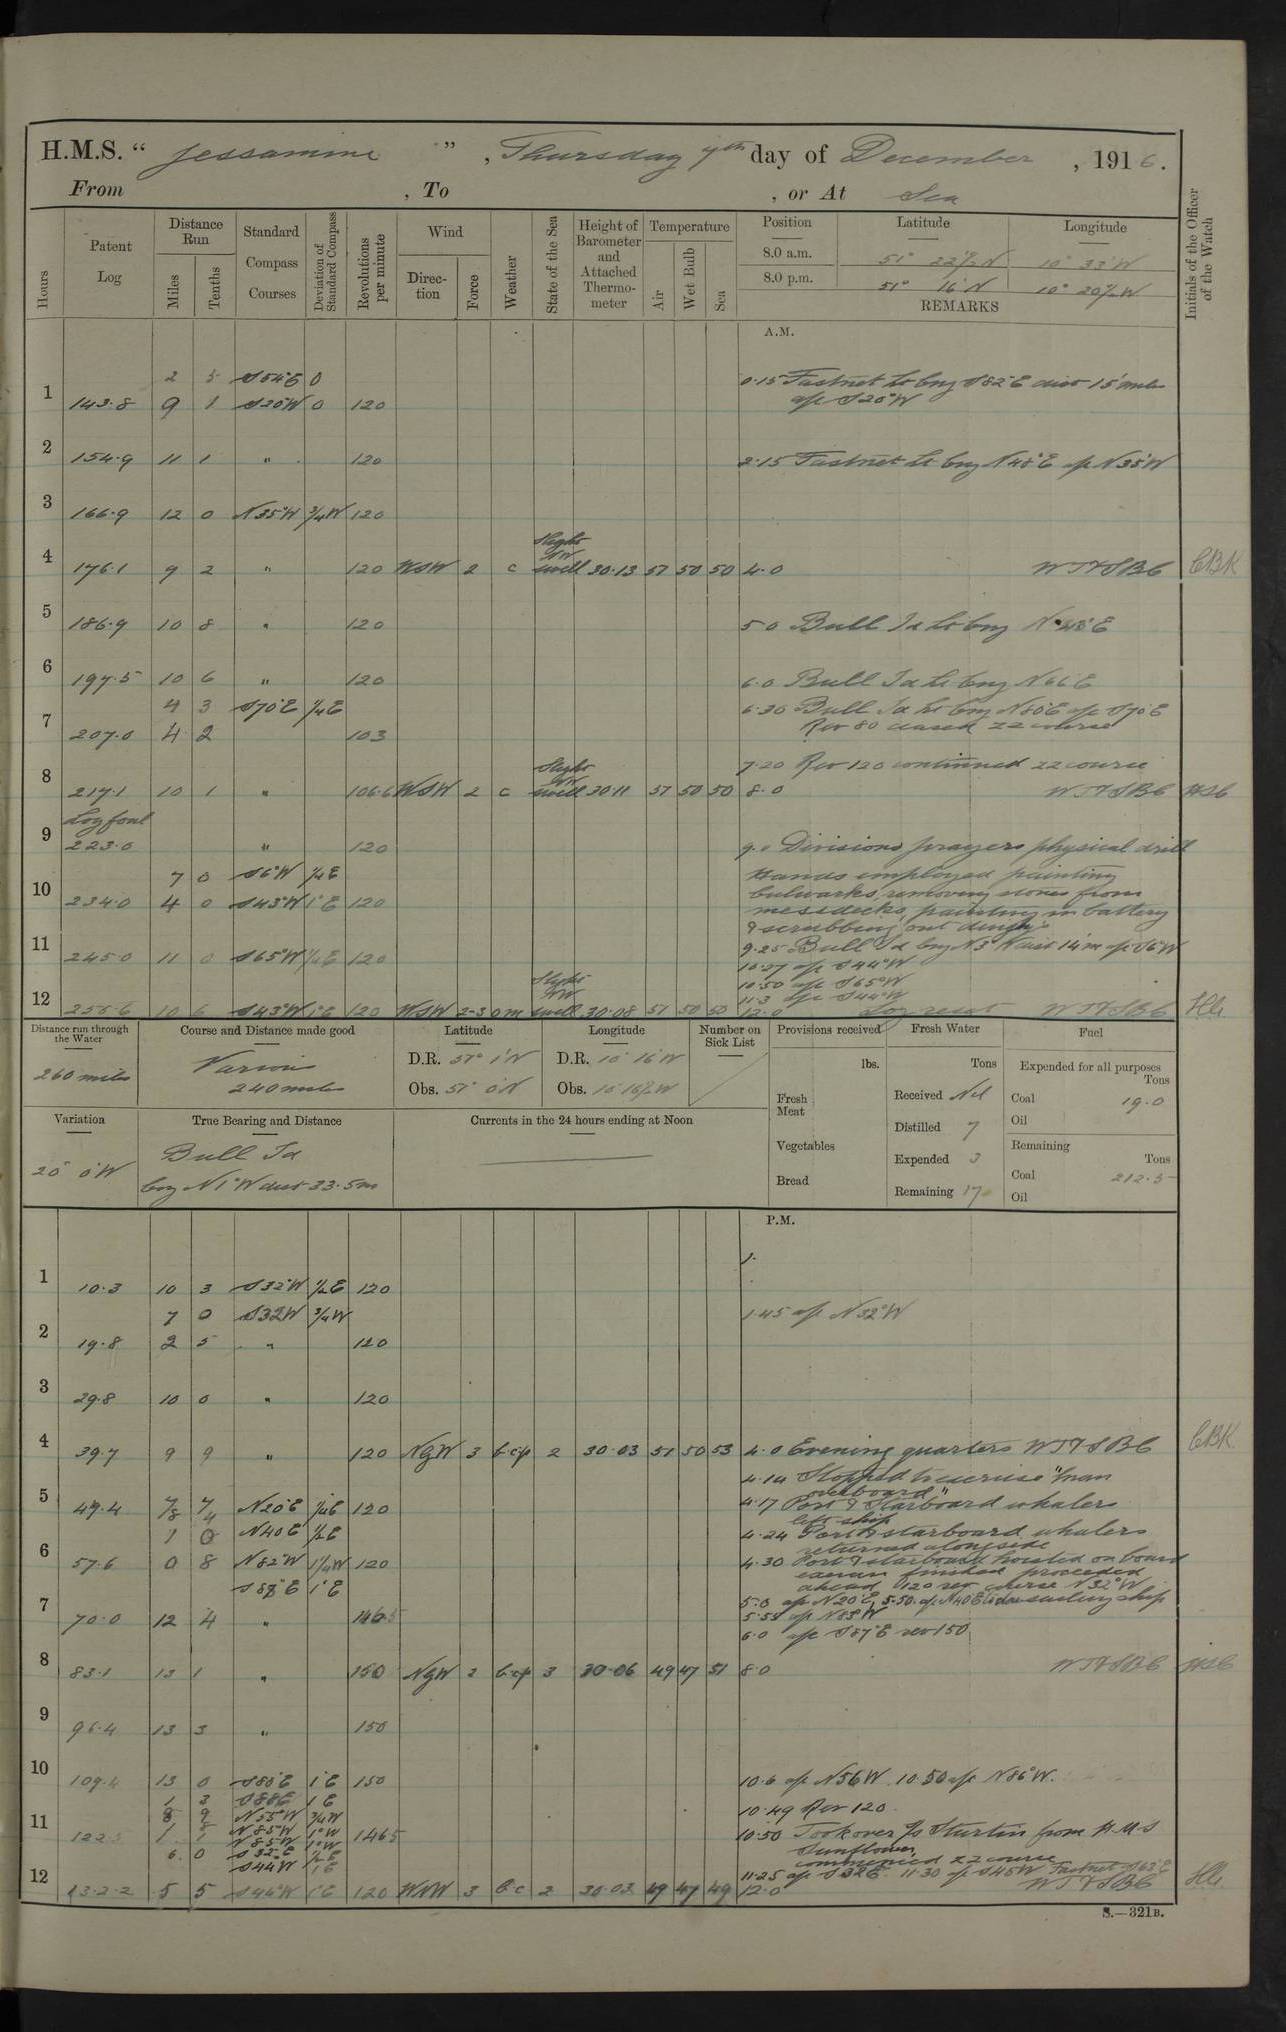 H.M.S. “ Jessamine ” , Thursday 7th day of December , 1916.
From , To , or At Sea
Hours
Patent Log
Distance Run
Miles
Tenths
Standard Compass Courses
Deviation of Standard Compass
Revolutions per minute
Wind
Direction
Force
Weather
State of the Sea
Height of Barometer and Attached Thermometer
Temperature
Air
Wet Bulb
Sea
Position Latitude Longitude
8.0 a.m. 51° 22½'N 10° 33'W
8.0 p.m. 51° 16'N 10° 20½W
REMARKS
Initials of the Officer of the Watch
A.M.
2 5 S54°E 0 0.15 Fastnet Lt brg S82°E dist 15 miles
1 143.8 9 1 S20°W 0 120 a/c S20°W
2 154.9 11 1 " 120 2.15 Fastnet Lt brg N48°E a/c N35°W
3 166.9 12 0 N35°W ¾W 120
4 176.1 9 2 " 120 WSW 2 c Slight SW swell 30.13 51 50 50 4.0 WT&SBC CBK
5 186.9 10 8 " 120 5.0 Bull Id Lt brg N48°E
6 197.5 10 6 " 120 6.0 Bull Id Lt brg N66E
4 3 S70°E ¼E 6.30 Bull Id Lt brg N80°E a/c S70°E
7 207.0 4 2 103 Rev 80 ceased ZZ course
7.20 Rev 120 continued ZZ course
8 217.1 10 1 " 106.6 WSW 2 c Slight SW swell 30.11 51 50 50 8.0 WT&SBC
Log foul
9 223.0 " 120 9.0 Divisions prayers physical drill
7 0 S6°W ½E Hands employed painting
bulwarks, removing stores from
10 234.0 4 0 S43°W 1°E 120 messdecks, painting in battery
& scrubbing out dinghy
9.25 Bull Id brg N3°W dist 14'm a/c S6°W
11 245.0 11 0 S65°W ¼E 120 10.27 a/c S44°W
10.50 a/c S65°W
11.3 a/c S44°W
12 255.6 10 6 S43°W 1°E 120 WSW 2-3 om Slight SW swell 30.08 51 50 50 12.0 Log reset WT&SBC
Distance run through the Water
260 miles
Course and Distance made good
Various
240 miles
Latitude
D.R. 51° 1'N
Obs. 51° 0'N
Longitude
D.R. 10° 16'W
Obs. 10° 16½W
Number on Sick List
Provisions received
lbs.
Fresh Meat
Vegetables
Bread
Fresh Water
Tons
Received Nil
Distilled 7
Expended 3
Remaining 17
Fuel
Expended for all purposes
Tons
Coal 19.0
Oil
Remaining
Tons
Coal 212.5
Oil
Variation
20° 0'W
True Bearing and Distance
Bull Id
brg N1°W dist 33.5m
Currents in the 24 hours ending at Noon
P.M.
1 10.3 10 3 S32°W ½E 120
7 0 S32W ¾W 1.45 a/c N32°W
2 19.8 2 5 " 120
3 29.8 10 0 " 120
4 39.7 9 9 " 120 NyW 3 b.c.p 2 30.03 51 50 53 4.0 Evening quarters WT&SBC CBK
4.14 Stopped to exercise "man
overboard"
5 49.4 N20°E ¼E 120 4.17 Port & Starboard whalers
left ship
1 0 N40E ½E 4.24 Port & starboard whalers
returned alongside
6 57.6 0 8 N82°W 1¼W 120 4.30 Port & starboard hoisted on board
exercise finished proceeded
ahead 120 rev course N32°W
S87°E 1°E 5.0 a/c N20°E, 5.50 a/c N40E to close sailing ship
5.55 a/c N83°W
7 70.0 12 4 " 146.5 6.0 a/c S87°E rev 150
8 83.1 13 1 " 150 NyW 2 b.c.p 3 30.06 49 47 51 8.0 WT&SBC
9 96.4 13 3 " 150
10 109.4 13 0 S80°E 1°E 150 10.6 a/c N56W. 10.50 a/c N86°W.
1 3 S88E 1E
8 9 N55°W ¾W 10.49 Rev 120
N85W 1°W
11 122.5 1 1 N85W 1°W 146.5 10.50 Took over from H.M.S
Sunflower,
6 0 S32°E ½E commenced ZZ course
S44W 1E 11.25 a/c S32E. 11.30 a/c S45W Fastnet S63°E
12 132.2 5 5 S44°W 1°E 120 WNW 3 b.c 2 30.03 49 47 49 12.0 WT&SBC
S.—321B.